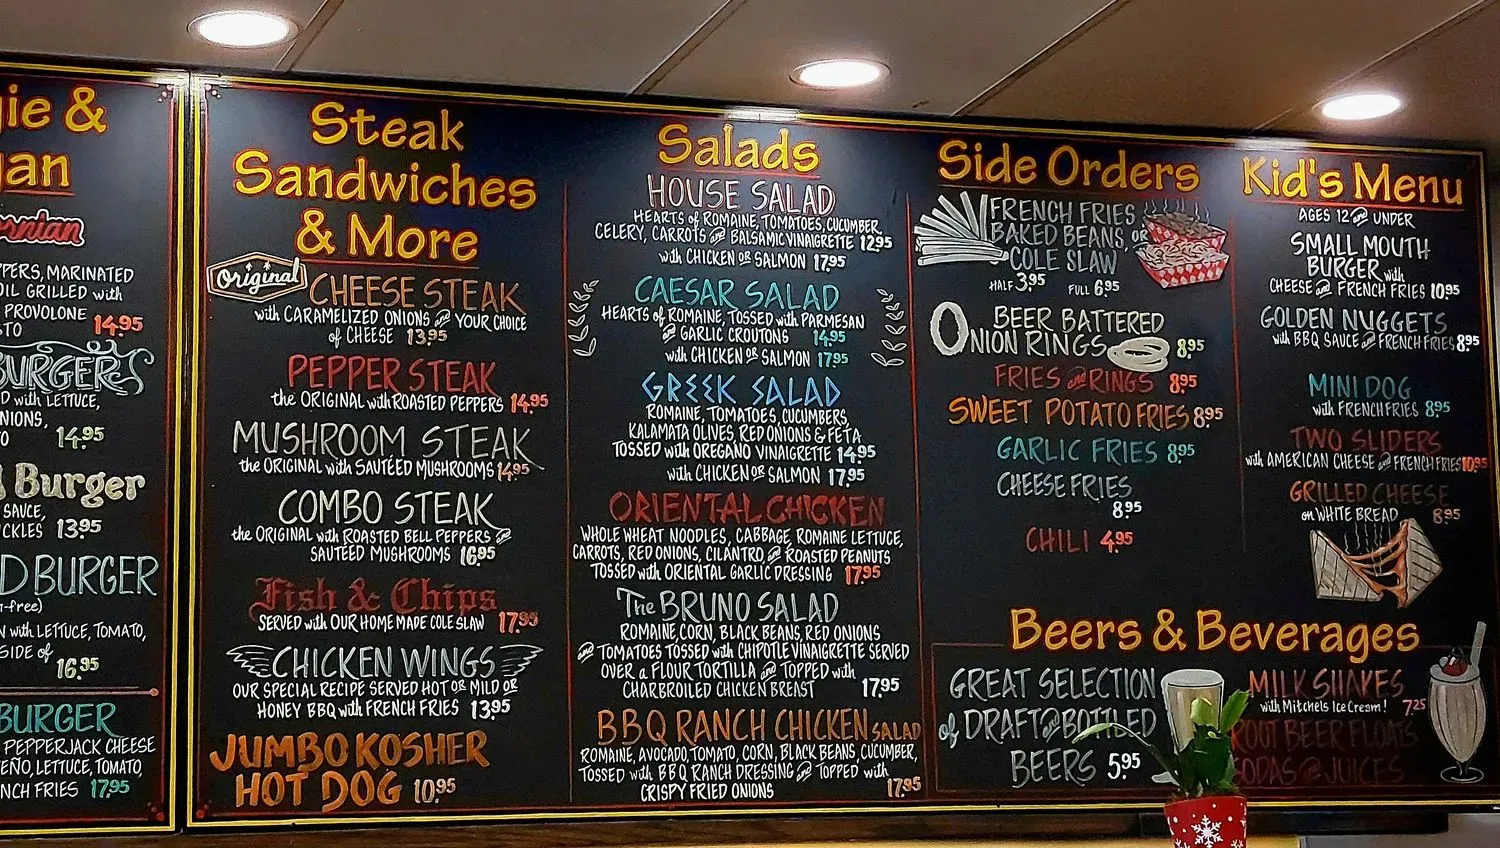 gie &
gan
ornian
PPERS, MARINATED
OIL GRILLED with
PROVOLONE
STO 14.95
BURGERS
D with LETTUCE,
NIONS,
TO 14.95
Burger
SAUCE,
CKLES 13.95
D BURGER
n-free)
N with LETTUCE, TOMATO,
SIDE of
16.95
BURGER
PEPPERJACK CHEESE
EÑO, LETTUCE, TOMATO,
NCH FRIES 17.95
Steak
Sandwiches
& More
Original
CHEESE STEAK
with CARAMELIZED ONIONS and YOUR CHOICE
of CHEESE 13.95
PEPPER STEAK
the ORIGINAL with ROASTED PEPPERS 14.95
MUSHROOM STEAK
the ORIGINAL with SAUTÉED MUSHROOMS 14.95
COMBO STEAK
the ORIGINAL with ROASTED BELL PEPPERS and
SAUTÉED MUSHROOMS 16.95
Fish & Chips
SERVED with OUR HOME MADE COLE SLAW 17.95
CHICKEN WINGS
OUR SPECIAL RECIPE SERVED HOT OR MILD OR
HONEY BBQ with FRENCH FRIES 13.95
JUMBO KOSHER
HOT DOG 10.95
Salads
HOUSE SALAD
HEARTS of ROMAINE, TOMATOES, CUCUMBER,
CELERY, CARROTS and BALSAMIC VINAIGRETTE 12.95
with CHICKEN OR SALMON 17.95
CAESAR SALAD
HEARTS of ROMAINE, TOSSED with PARMESAN
and GARLIC CROUTONS 14.95
with CHICKEN OR SALMON 17.95
GREEK SALAD
ROMAINE, TOMATOES, CUCUMBERS,
KALAMATA OLIVES, RED ONIONS & FETA
TOSSED with OREGANO VINAIGRETTE 14.95
with CHICKEN OR SALMON 17.95
ORIENTAL CHICKEN
WHOLE WHEAT NOODLES, CABBAGE, ROMAINE LETTUCE,
CARROTS, RED ONIONS, CILANTRO and ROASTED PEANUTS
TOSSED with ORIENTAL GARLIC DRESSING 17.95
The BRUNO SALAD
ROMAINE, CORN, BLACK BEANS, RED ONIONS
and TOMATOES TOSSED with CHIPOTLE VINAIGRETTE SERVED
OVER a FLOUR TORTILLA and TOPPED with
CHARBROILED CHICKEN BREAST 17.95
BBQ RANCH CHICKEN SALAD
ROMAINE, AVOCADO, TOMATO, CORN, BLACK BEANS, CUCUMBER,
TOSSED with BBQ RANCH DRESSING and TOPPED with
CRISPY FRIED ONIONS 17.95
Side Orders
FRENCH FRIES
BAKED BEANS, OR
COLE SLAW
HALF 3.95 FULL 6.95
BEER BATTERED
ONION RINGS 8.95
FRIES and RINGS 8.95
SWEET POTATO FRIES 8.95
GARLIC FRIES 8.95
CHEESE FRIES
8.95
CHILI 4.95
Kid's Menu
AGES 12 and UNDER
SMALL MOUTH
BURGER with
CHEESE and FRENCH FRIES 10.95
GOLDEN NUGGETS
with BBQ SAUCE and FRENCH FRIES 8.95
MINI DOG
with FRENCH FRIES 8.95
TWO SLIDERS
with AMERICAN CHEESE and FRENCH FRIES 10.95
GRILLED CHEESE
on WHITE BREAD 8.95
Beers & Beverages
GREAT SELECTION
of DRAFT and BOTTLED
BEERS 5.95
MILK SHAKES
with Mitchels Ice Cream! 7.25
ROOT BEER FLOATS
SODAS @ JUICES